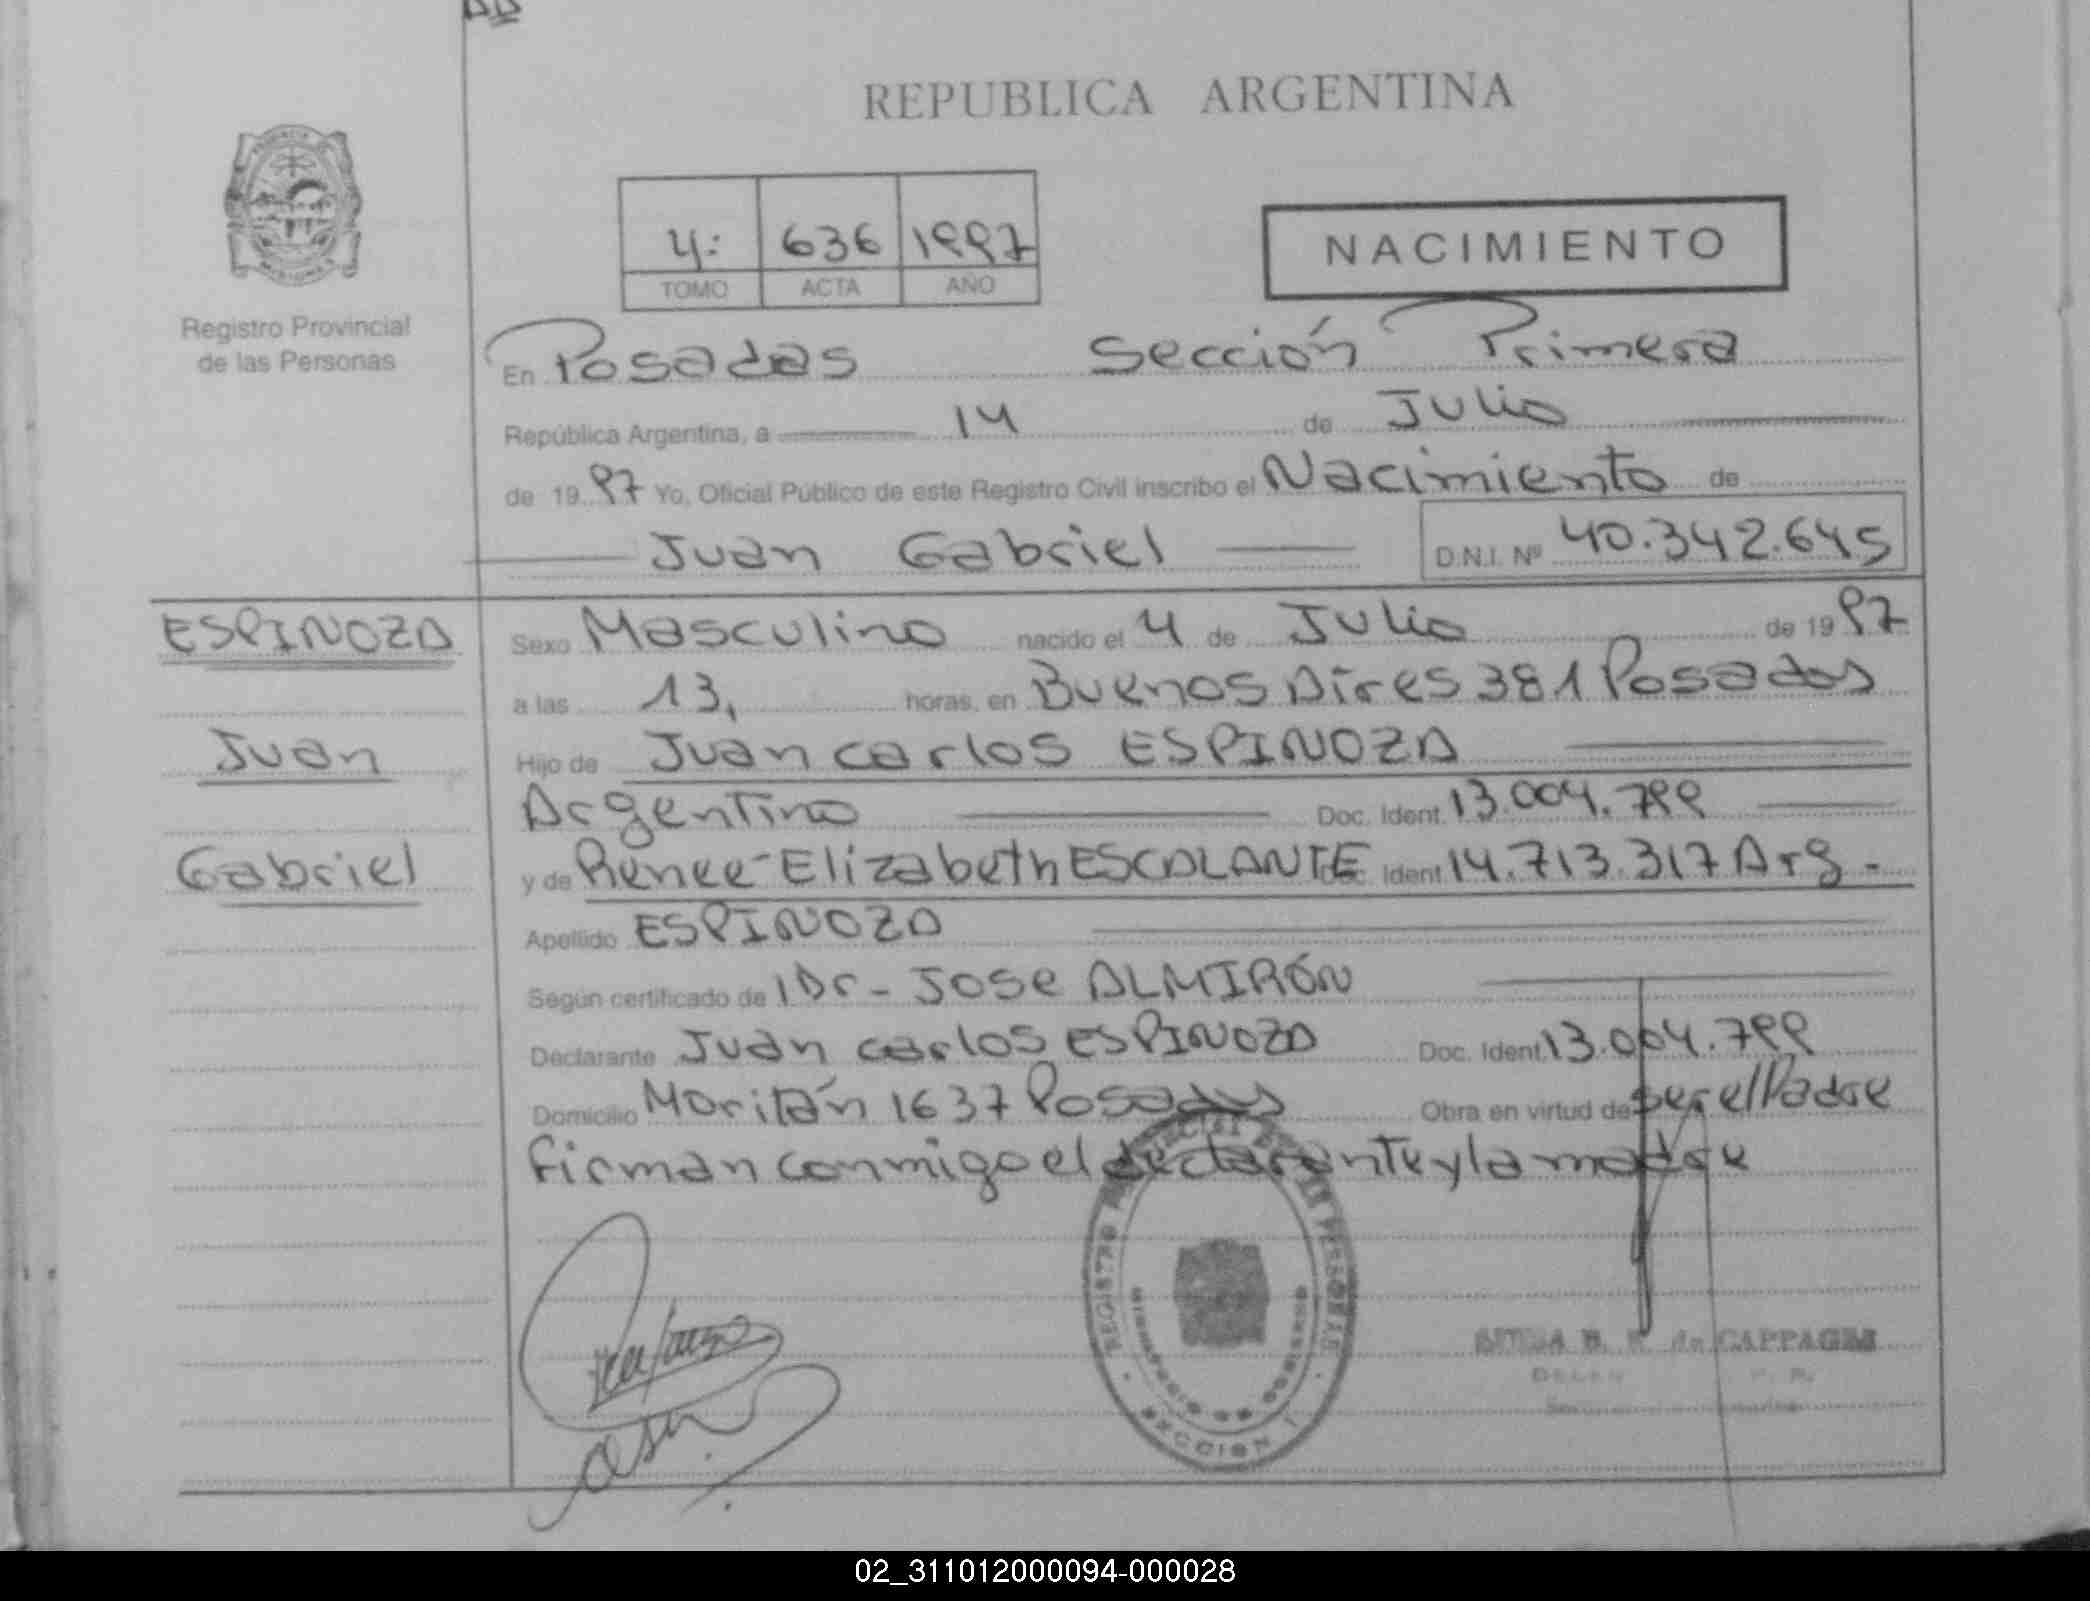 REPUBLICA ARGENTINA
4: 636 1997
TOMO ACTA AÑO
NACIMIENTO
Registro Provincial
de las Personas
En Posadas Sección Primera
República Argentina, a 14 de Julio
de 1997 Yo, Oficial Público de este Registro Civil inscribo el Nacimiento de
Juan Gabriel D.N.I. Nº 40.342.645
ESPINOZA
Juan
Gabriel
Sexo Masculino nacido el 4 de Julio de 1997
a las 13, horas, en Buenos Aires 381 Posadas
Hijo de Juan carlos ESPINOZA
Argentino Doc. Ident. 13.004.799
y de Renee Elizabeth ESCALANTE Doc. Ident. 14.713.317 Arg -
Apellido ESPINOZA
Según certificado de Dr - Jose ALMIRÓN
Declarante Juan carlos ESPINOZA Doc. Ident. 13.004.799
Domicilio Moritán 1637 Posadas Obra en virtud de ser el Padre
firman conmigo el declarante y la madre
REGISTRO PROVINCIAL DE LAS PERSONAS
SECCION 1
de CAPPAGLI
02_311012000094-000028